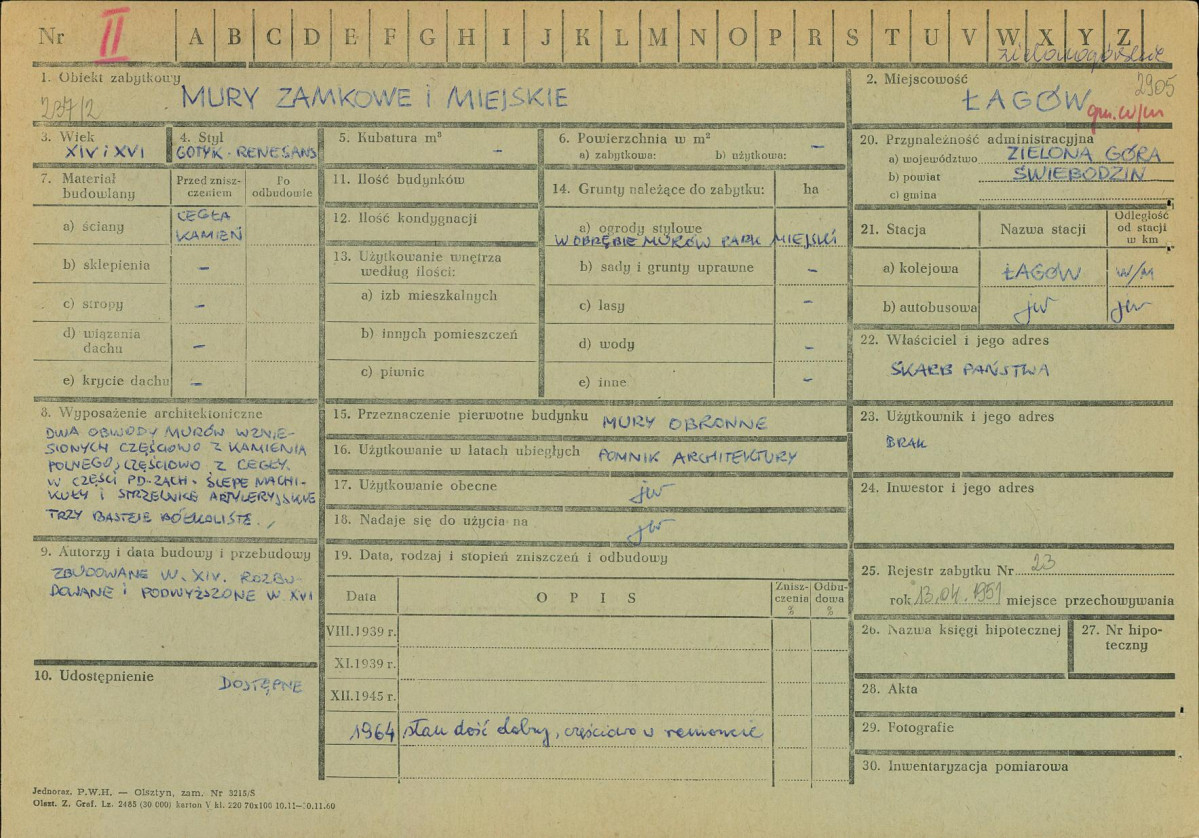 Nr II A B C D E F G H I J K L M N O P R S T U V W X Y Z
zielonogórskie
1. Obiekt zabytkowy
237/2
MURY ZAMKOWE i MIEJSKIE
2. Miejscowość
2905
ŁAGÓW
gm. w/m
3. Wiek
XIV i XVI
4. Styl
GOTYK - RENESANS
5. Kubatura m³
-
6. Powierzchnia w m²
a) zabytkowa: b) użytkowa:
-
20. Przynależność administracyjna
a) województwo ZIELONA GÓRA
b) powiat ŚWIEBODZIN
c) gmina
7. Materiał
budowlany
Przed znisz-
czeniem
Po
odbudowie
a) ściany
CEGŁA
KAMIEŃ
b) sklepienia -
c) stropy -
d) wiązania
dachu -
e) krycie dachu -
11. Ilość budynków
12. Ilość kondygnacji
13. Użytkowanie wnętrza
według ilości:
a) izb mieszkalnych
b) innych pomieszczeń
c) piwnic
14. Grunty należące do zabytku: ha
a) ogrody stylowe
W OBRĘBIE MURÓW PARK MIEJSKI
b) sady i grunty uprawne -
c) lasy -
d) wody -
e) inne -
21. Stacja
Nazwa stacji
Odległość
od stacji
w km
a) kolejowa ŁAGÓW W/M
b) autobusowa jw jw
22. Właściciel i jego adres
SKARB PAŃSTWA
8. Wyposażenie architektoniczne
DWA OBWODY MURÓW WZNIE-
SIONYCH CZĘŚCIOWO Z KAMIENIA
POLNEGO, CZĘŚCIOWO Z CEGŁY.
W CZĘŚCI PD-ZACH. ŚLEPE MACHI-
KUŁY I STRZELNICE ARTYLERYJSKIE
TRZY BASTEJE PÓŁKOLISTE.
15. Przeznaczenie pierwotne budynku MURY OBRONNE
16. Użytkowanie w latach ubiegłych POMNIK ARCHITEKTURY
17. Użytkowanie obecne jw
18. Nadaje się do użycia na jw
23. Użytkownik i jego adres
BRAK
24. Inwestor i jego adres
9. Autorzy i data budowy i przebudowy
ZBUDOWANE W. XIV. ROZBU-
DOWANE i PODWYŻSZONE W. XVI
10. Udostępnienie
DOSTĘPNE
19. Data, rodzaj i stopień zniszczeń i odbudowy
Data
OPIS
Znisz-
czenia
%
Odbu-
dowa
%
VIII.1939 r.
XI.1939 r.
XII.1945 r.
1964 stan dość dobry, częściowo w remoncie
25. Rejestr zabytku Nr 23
rok 13.04.1951 miejsce przechowywania
26. Nazwa księgi hipotecznej
27. Nr hipo-
teczny
28. Akta
29. Fotografie
30. Inwentaryzacja pomiarowa
Jednoraz. P.W.H. — Olsztyn, zam. Nr 3215/S
Olszt. Z. Graf. Lz. 2485 (30 000) karton V kl. 220 70x100 10.11—30.11.60